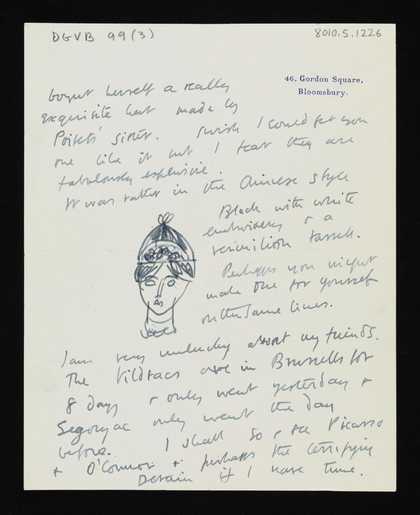 DGVB 99 (3)
8010.5.1226
46, Gordon Square,
Bloomsbury.
herself a really
exquisite hat made by
Poirets' sister. I wish I could get you
one like it but I fear they are
fabulously expensive.
It was rather in the Chinese style
Black with white
embroidery & a
vermilion tassel.
Perhaps you might
make one for yourself
on the same lines.
I am very unlucky about my friends.
The Vildracs are in Brussels for
8 days & only went yesterday &
Segonzac only went the day
before. I shall go & see Picasso
& O'Connor & perhaps the terrifying
Derain if I have time.